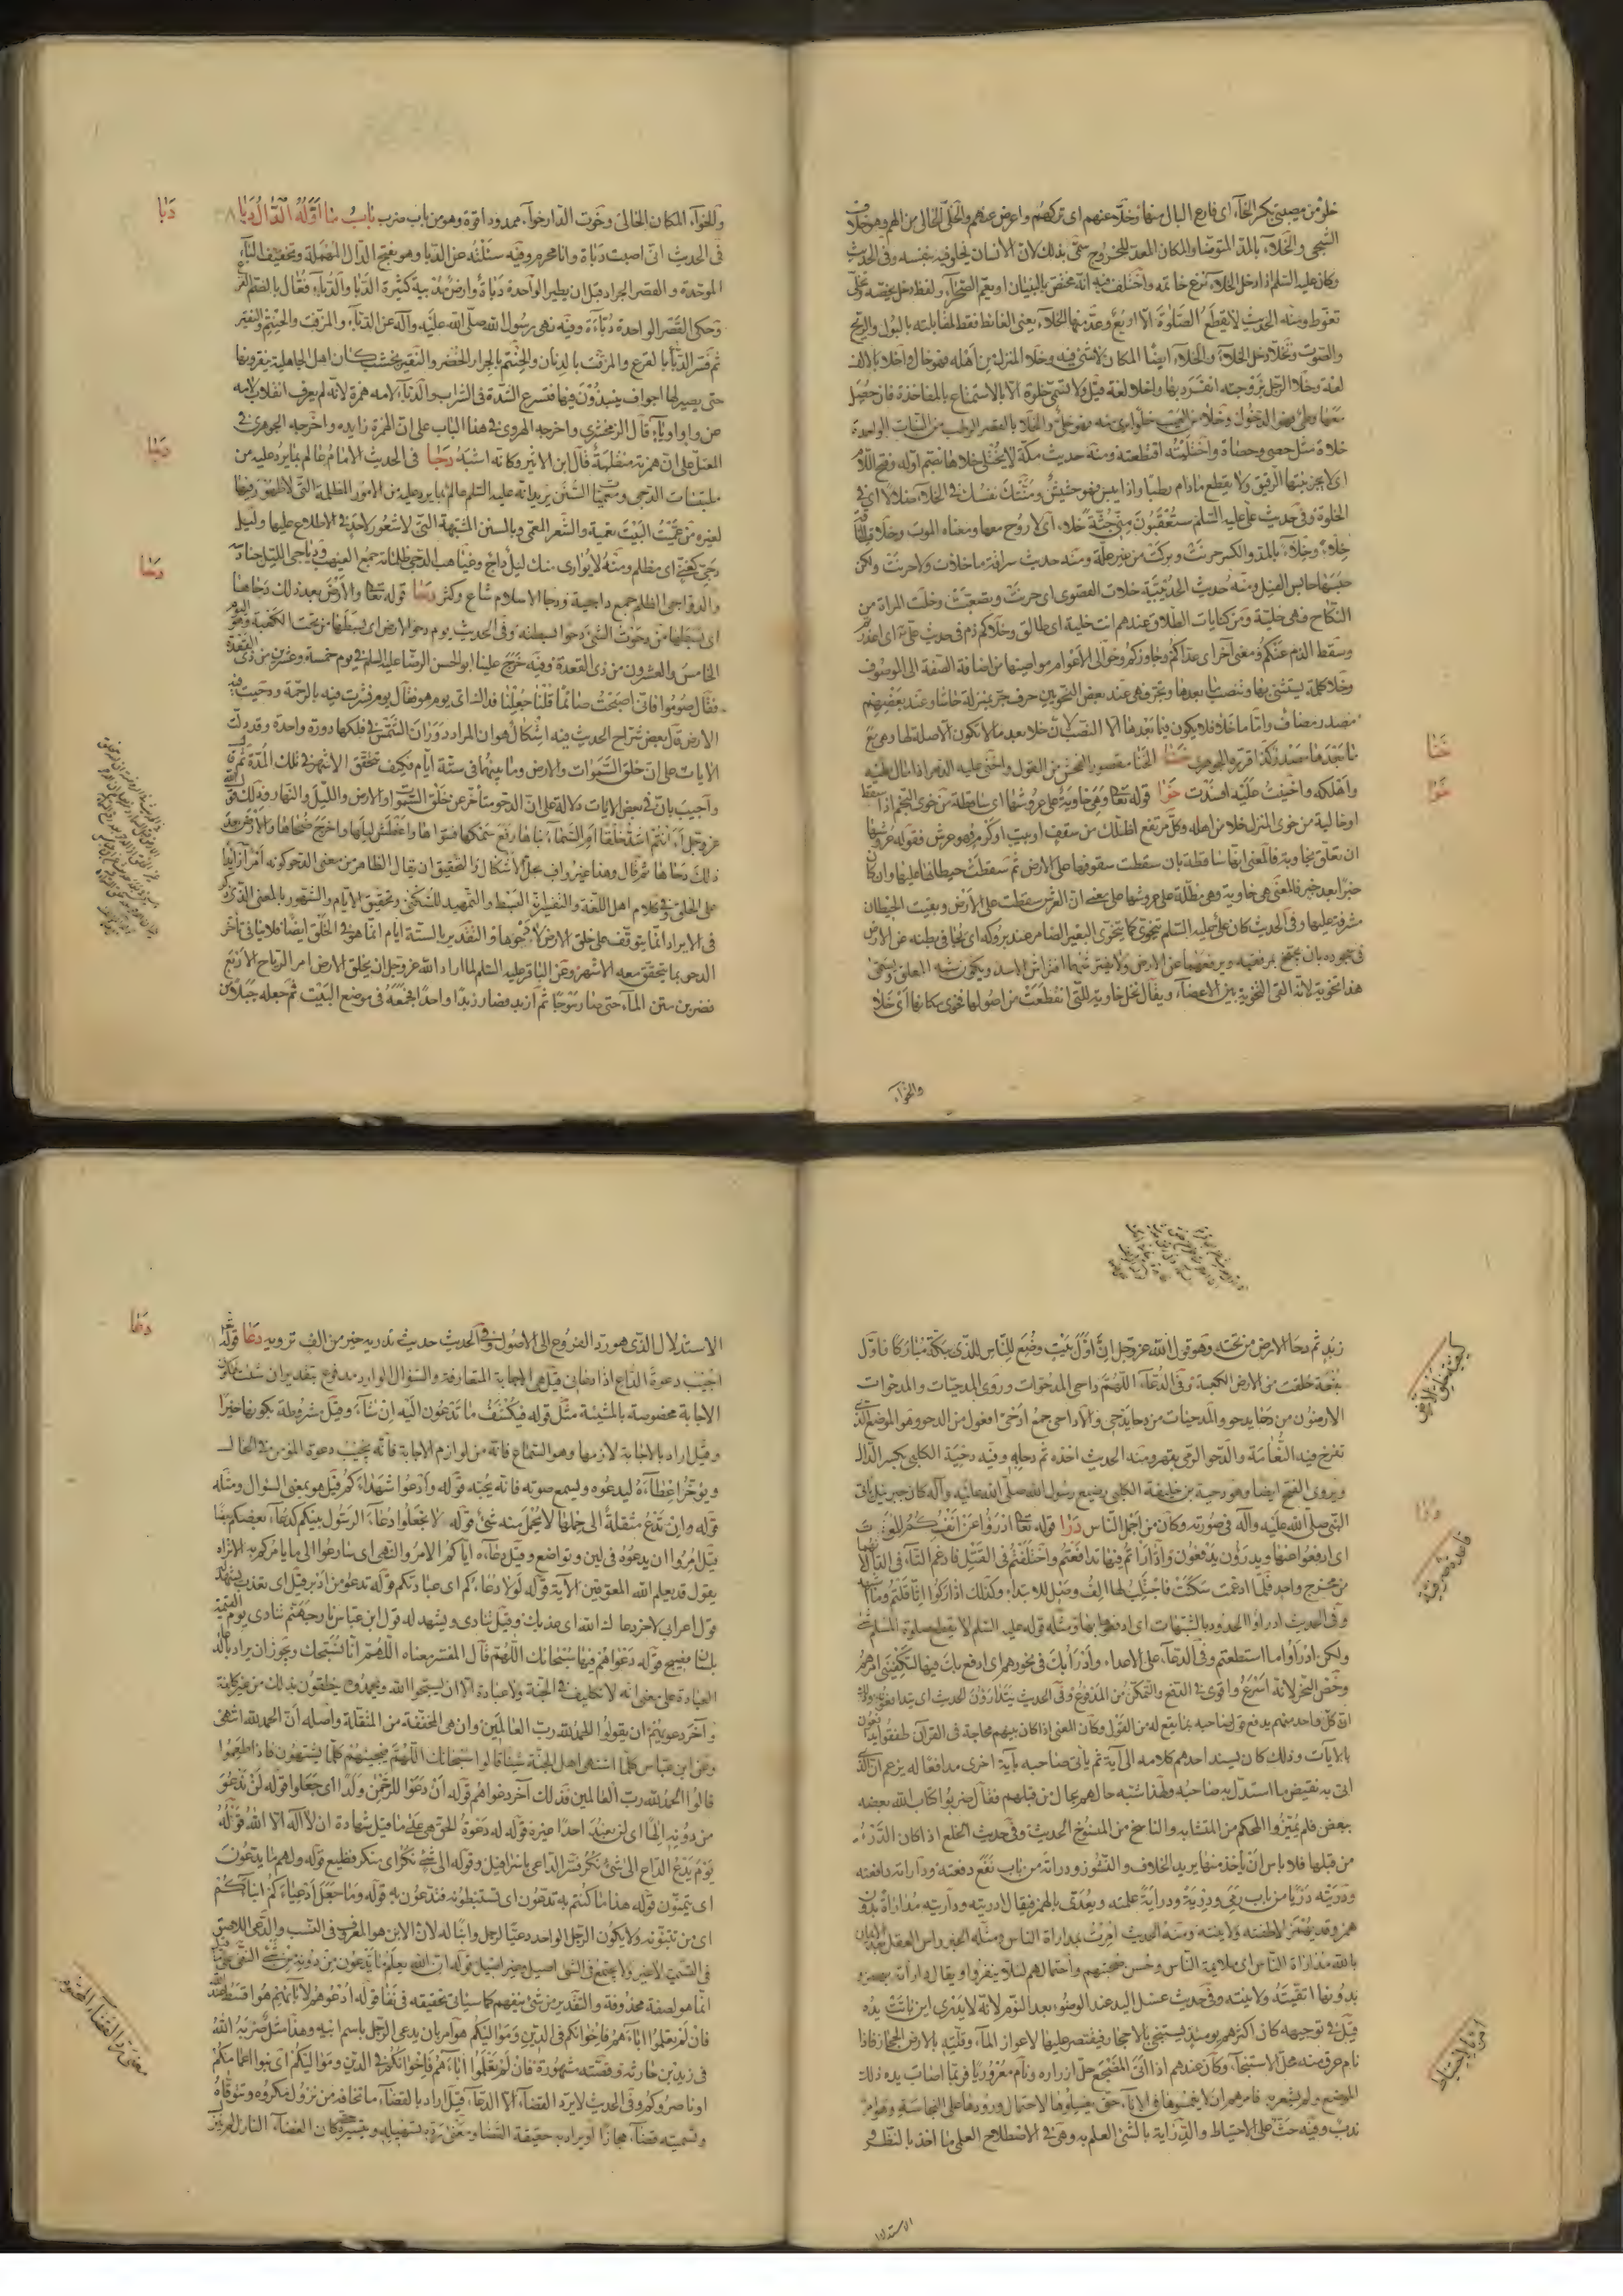 خلو من مصيبتي بكسر الخاء اى فارغ البال منها وخلا عنهم اى تركهم واعرض عنهم والخلى الخالى من الهم وهو خلاف
الشجى والخلاء بالمد المتوضا والمكان المعد للخروج سمى بذلك لان الانسان يخلو فيه بنفسه وفى الحديث
وكان عليه السلم اذا دخل الخلاء نزع خاتمه واختلف فيه انه مختص بالبنيان او يعم الصحراء ولفظ دخل يخصه وتخلى
تغوط ومنه الحديث لا يقطع الصلوة الا اربع وعد منها الخلاء يعنى الغائط فقط لمقابلته بالبول والريح
والصوت وتخلا دخل الخلاء والخلاء ايضا المكان لا شئ فيه وخلا المنزل من اهله فهو خال واخلا بالالف
لغة وخلا الرجل بزوجته انفرد بها واخلا لغة قيل ولا تسمى خلوة الا بالاستمتاع بالمفاخذة فان حصل
معها وطئ فهو الدخول وخلا من العيب خلوا برئ منه فهو خلى والخلا بالقصر الرطب من النبات الواحدة
خلاة مثل حصى وحصاة واختليته اقتطعته ومنه حديث مكة لا يختلى خلاها بضم اوله وفتح اللام
اى لا يجز نبتها الرقيق ولا يقطع مادام رطبا واذا يبس فهو حشيش ومنتك نفسك فى الخلاء ضلالا اى فى
الخلوة وفى حديث على عليه السلم ستعقبون منى جثة خلاء اى لا روح معها ومعناه الموت وخلات الناقة
خلاء وخلاء بالمد والكسر حرنت وبركت من غير علة ومنه حديث سراقة ما خلات ولا حرنت ولكن
حبسها حابس الفيل ومنه حديث الحديبية خلات القصوى اى حرنت وتصعبت وخلت المراة من
النكاح فهى خلية ومن كنايات الطلاق عندهم انت خلية اى طالق وخلاكم ذم فى حديث على ع اى اعذرتم
وسقط الذم عنكم ومعنى آخر اى عداكم وجاوزكم وخوالى الاعوام مواضيها من اضافة الصفة الى الموصوف
وخلا كلمة يستثنى بها وتنصب ما بعدها وتجر فهى عند بعض النحويين حرف جر بمنزلة حاشا وعند بعضهم
مصدر مضاف واما ما خلا فلا يكون فيما بعدها الا النصب لان خلا بعد ما لا تكون الا صلة لها وهى مع
ما بعدها مصدر كذا قرره الجوهرى خنا الخنا مقصور الفحش من القول واخنى عليه الدهر اذا مال عليه
واهلكه واخنيت عليه افسدت خوا قوله تعا وهى خاوية على عروشها اى ساقطة من خوى النجم اذا سقط
او خالية من خوى المنزل خلا من اهله وكل مرتفع اظلك من سقف او بيت او كرم فهو عرش فقوله على عروشها
ان تعلق بخاوية فالمعنى انها ساقطة بان سقطت سقوفها على الارض ثم سقطت حيطانها عليها وان كان
خبرا بعد خبر فالمعنى هى خاوية وهى مظلة على عروشها على معنى ان العرش سقطت على الارض وبقيت الحيطان
مشرفة عليها وفى الحديث كان على عليه السلم يتخوى كما يتخوى البعير الضامر عند بروكه اى يجافى بطنه عن الارض
فى سجوده بان يجنح بمرفقيه ويرفعهما عن الارض ولا يفترشهما افتراش الاسد ويكون شبه المعلق ويسمى
هذا تخوية لانه القى التخوية بين الاعضاء ويقال نخل خاوية للتى انقطعت من اصولها فخوى مكانها اى خلا
والخواء
خنا
خوا
والخواء المكان الخالى وخوت الدار خواء ممدود اقوة وهو من باب ضرب باب ما اوله الدال دبا
فى الحديث انى اصبت دباة وانا محرم وفيه سئلته عن الدبا وهو بفتح الدال المهملة وتخفيف الباء
الموحدة والقصر الجراد قبل ان يطير الواحدة دباة وارض مدبية كثيرة الدبا والدباء فعال بالضم القرع
وحكى القصر الواحدة دباءة وفيه نهى رسول الله صلى الله عليه وآله عن الدباء والمزفت والحنتم والنقير
ثم فسر الدبا بالقرع والمزفت بالدنان والحنتم بالجرار الخضر والنقير بخشب كان اهل الجاهلية ينقرونها
حتى يصير لها اجواف ينبذون فيها فتسرع الشدة فى الشراب والدباء لامه همزة لانه لم يعرف انقلاب لامه
عن واو او ياء قال الزمخشرى واخرجه الهروى فى هذا الباب على ان الهمزة زايدة واخرجه الجوهرى فى
المعتل على ان همزته منقلبة قال ابن الاثير وكانه اشبه دجا فى الحديث الامام عالم بما يرد عليه من
ملتبسات الدجى ومعميات السنن يريد انه عليه السلم عالم بما يرد عليه من الامور المظلمة التى لا ظهور فيها
لغيره من عميت البيت تعمية والشعر المعمى وبالسنن المشتبهة التى لا شعور لاحد فى الاطلاع عليها وليل
دجى كغنى اى مظلم ومنه لا يوارى منك ليل داج وغياهب الدجى ظلماته جمع الغيهب ودياجى الليل حنادسه
والدواجى الظلم جمع داجية ودجا الاسلام شاع وكثر دحا قوله تعا والارض بعد ذلك دحاها
اى بسطها من دحوت الشئ دحوا بسطته وفى الحديث يوم دحو الارض اى بسطها من تحت الكعبة وهو اليوم
الخامس والعشرون من ذى القعدة وفيه خرج علينا ابو الحسن الرضا عليه السلم فى يوم خمسة وعشرين من ذى القعدة
فقال صوموا فانى اصبحت صائما قلنا جعلنا فداك اى يوم هو فقال يوم نشرت فيه الرحمة ودحيت فيه
الارض قال بعض شراح الحديث فيه اشكال هو ان المراد دوران الشمس فى فلكها دورة واحدة وقد دلت
الايات على ان خلق السموات والارض وما بينهما فى ستة ايام فكيف تتحقق الاشهر فى تلك المدة ثم قال
واجيب بان فى بعض الايات دلالة على ان الدحو متأخر عن خلق السموات والارض والليل والنهار وذلك قوله
عز وجل ءانتم اشد خلقا ام السماء بناها رفع سمكها فسواها واغطش ليلها واخرج ضحاها والارض بعد
ذلك دحاها ثم قال وهذا غير واف بحل الاشكال والتحقيق ان يقال الظاهر من معنى الدحو كونه امرا زايدا
على الخلق وفى كلام اهل اللغة والتفسير انه البسط والتمهيد للسكنى وتحقيق الايام والشهور بالمعنى الذى ذكر
فى الايراد انما يتوقف على خلق الارض لا دحوها والتقدير بالستة ايام انما هو فى الخلق ايضا فلا ينافى تأخر
الدحو بما يتحقق معه الاشهر وعن الباقر عليه السلم لما اراد الله عز وجل ان يخلق الارض امر الرياح الاربع
فضربن متن الماء حتى صار موجا ثم ازبد فصار زبدا واحدا فجمعه فى موضع البيت ثم جعله جبلا من
دبا
دجا
دحا
زبد ثم دحا الارض من تحته وهو قول الله عز وجل ان اول بيت وضع للناس للذى ببكة مباركا فاول
بقعة خلقت من الارض الكعبة وفى الدعاء اللهم داحى المدحوات وروى المدحيات والمدحوات
الارضون من دحا يدحو والمدحيات من دحا يدحى والاداحى جمع ادحى افعول من الدحو وهو الموضع الذى
تفرخ فيه النعامة والدحو الرمى بقهر ومنه الحديث اخذه ثم دحا به وفيه دحية الكلبى بكسر الدال
ويروى الفتح ايضا وهو دحية بن خليفة الكلبى رضيع رسول الله صلى الله عليه وآله كان جبرئيل ياتى
النبى صلى الله عليه وآله فى صورته وكان من اجمل الناس درا قوله تعا ادرؤا عن انفسكم الموت
اى ادفعوا عنها ويدرؤن يدفعون واذ ادارأتم فيها تدافعتم واختلفتم فى القتل فادغم التاء فى الدال لانهما
من مخرج واحد فلما ادغمت سكنت فاجتلب لها الف وصل للابتداء وكذلك اداركوا اثاقلتم وما اشبهه
وفى الحديث ادرؤا الحدود بالشبهات اى ادفعوها بها ومثله قوله عليه السلم لا يقطع صلوة المسلم شئ
ولكن ادرأوا ما استطعتم وفى الدعاء على الاعداء وادرأ بك فى نحورهم اى ادفع بك فيها لتكفينى امرهم
وخص النحر لانه اسرع واقوى فى الدفع والتمكن من المدفوع وفى الحديث يتدارؤن الحديث اى يتدافعون وذلك
ان كل واحد منهم يدفع قول صاحبه بما يقع له من القول وكان المعنى اذا كان بينهم محاجة فى القرآن طفقوا يدافعون
بالآيات وذلك كان يسند احدهم كلامه الى آية ثم ياتى صاحبه بآية اخرى مدافعا له يزعم ان الذى
اتى به نقيض ما استدل به صاحبه ولهذا شبه حالهم بحال من قبلهم فقال ضربوا كتاب الله بعضه
ببعض فلم يميزوا المحكم من المتشابه والناسخ من المنسوخ الحديث وفى حديث الخلع اذا كان الدرء
من قبلها فلا باس ان ياخذ منها يريد الخلاف والنشوز ودرأته من باب نفع دفعته ودارأته دافعته
ودريته دريا من باب رمى ودرية ودراية علمته ويعدى بالهمز فيقال ادريته وداريته مداراة بدون
همز وقد يهمز لاطفته ولاينته ومنه الحديث امرت بمداراة الناس ومثله الحديث راس العقل بعد الايمان
بالله مداراة الناس اى ملايمة الناس وحسن صحبتهم واحتمالهم لئلا ينفروا ويقال دارأته بهمز و
بدونها اتقيته ولاينته وفى حديث غسل اليد عند الوضوء بعد النوم لانه لا يدرى اين باتت يده
قيل فى توجيهه كان اكثرهم يومئذ يستنجى بالاحجار فيقتصر عليها لاعواز الماء وقلته بالارض الحجاز فاذا
نام عرق منه محل الاستنجاء وكان عندهم اذا اتى المضجع حل ازراره ونام معروريا فربما اصاب يده ذلك
الموضع ولم يشعر به فامرهم ان لا يغمسوها فى الاناء حتى يغسلوها لاحتمال ورودها على النجاسة وهو امر
ندب وفيه حث على الاحتياط والدراية بالشئ العلم به وهى فى الاصطلاح العلمى ما اخذ بالنظر و
الاستدلال
كيفية خلق الارض
درا
قاعدة صرفية
الاستدلال الذى هو رد الفروع الى الاصول وفى الحديث حديث تدريه خير من الف ترويه دعا قوله تعا
اجيب دعوة الداع اذا دعان قيل هى الاجابة المتعارفة والسؤال الوارد مدفوع بتقدير ان شئت فيكون
الاجابة مخصوصة بالمشيئة مثل قوله فيكشف ما تدعون اليه ان شاء وقيل مشروطة بكونها خيرا
وقيل اراد بالاجابة لازمها وهو السماع فانه من لوازم الاجابة فانه يجيب دعوة المؤمن فى الحال
ويؤخر اعطاءه ليدعوه ويسمع صوته فانه يحبه قوله وادعوا شهداءكم قيل هو بمعنى السؤال ومثله
قوله وان تدع مثقلة الى حملها لا يحمل منه شئ قوله لا تجعلوا دعاء الرسول بينكم كدعاء بعضكم بعضا
قيل امروا ان يدعوه فى لين وتواضع وقيل دعاءه اياكم الامر والنهى اى سارعوا الى ما يامركم به الا تراه
يقول قد يعلم الله المعوقين الآية قوله لولا دعاؤكم اى عبادتكم قوله تدعو من ادبر قيل اى تعذب يشهد له
قول اعرابى لاخر دعاك الله اى عذبك وقيل تنادى ويشهد له قول ابن عباس نار جهنم تنادى يوم القيمة
بلسان فصيح قوله دعواهم فيها سبحانك اللهم قال المفسر معناه اللهم انا نسبحك ويجوز ان يراد بالدعاء
العبادة على معنى انه لا تكليف فى الجنة ولا عبادة الا ان يسبحوا الله ويحمدوه ينطقون بذلك من غير كلفة
وآخر دعويهم ان يقولوا الحمد لله رب العالمين وان هى المخففة من المثقلة واصله ان الحمد لله انتهى
وعن ابن عباس كلما اشتهى اهل الجنة شيئا قالوا سبحانك اللهم فيجيئهم كلما يشتهون فاذا طعموا
قالوا الحمد لله رب العالمين فذلك آخر دعواهم قوله ان دعوا للرحمن ولدا اى جعلوا قوله لن ندعو
من دونه الها اى لن نعبد احدا غيره قوله له دعوة الحق هى على ما قيل شهادة ان لا اله الا الله قوله
يوم يدع الداع الى شئ نكر فسر الداعى باسرافيل وقوله الى شئ نكر اى منكر فظيع قوله ولهم ما يدعون
اى يتمنون قوله هذا ما كنتم به تدعون اى تستبطئونه فتدعون به قوله وما جعل ادعياءكم ابناءكم
اى من تبنوته ولا يكون الرجل الواحد دعيا لرجل وابنا له لان الابن هو المعرق فى النسب والدعى اللاصق
فى التسمية لا غير ولا يجتمع فى الشئ اصيل وغير اصيل قوله ان الله يعلم ما يدعون من دونه من شئ
انما هو لصفة محذوفة والتقدير من شئ ينفعهم كما سياتى تحقيقه فى نفا قوله ادعوهم لابائهم هو اقسط عند الله
فان لم تعلموا اباءهم فاخوانكم فى الدين ومواليكم هو امر بان يدعى الرجل باسم ابيه وهذا مثل ضربه الله
فى زيد بن حارثة وقصته مشهورة فان لم تعلموا اباءهم فاخوانكم فى الدين ومواليكم اى بنوا اعمامكم
او ناصروكم وفى الحديث لا يرد القضاء الا الدعاء قيل اراد بالقضاء ما تخافه من نزول مكروه وتتوقاه
وتسميته قضاء مجازا او يراد به حقيقة القضاء ومعنى رده تسهيله وتيسيره حتى كان القضاء النازل لم ينزل
دعا
معنى رد القضاء